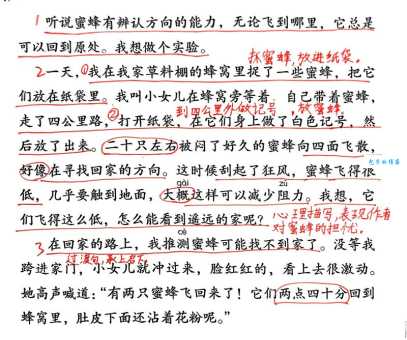 1 听说蜜蜂有辨认方向的能力，无论飞到哪里，它总是
可以回到原处。我想做个实验。
抹蜜蜂，放进纸袋。
2一天，①我在我家草料棚的蜂窝里捉了一些蜜蜂，把它
们放在纸袋里。我叫小女儿在蜂窝旁等着，自己带着蜜蜂，
到四公里外做记号，放蜜蜂，
走了四公里路，②打开纸袋，在它们身上做了白色记号，然
后放了出来。二十只左右被闷了好久的蜜蜂向四面飞散，
好像在寻找回家的方向。这时候刮起了狂风，蜜蜂飞得很
gài zǔ
低，几乎要触到地面，大概这样可以减少阻力。我想，它
们飞得这么低，怎么能看到遥远的家呢？
心理描写，表现作者
对蜜蜂的担忧。
cè
3 在回家的路上，我推测蜜蜂可能找不到家了。没等我
过渡句，承上启下
跨进家门，小女儿就冲过来，脸红红的，看上去很激动。
她高声喊道：“有两只蜜蜂飞回来了！它们两点四十分回到
蜂窝里，肚皮下面还沾着花粉呢。”